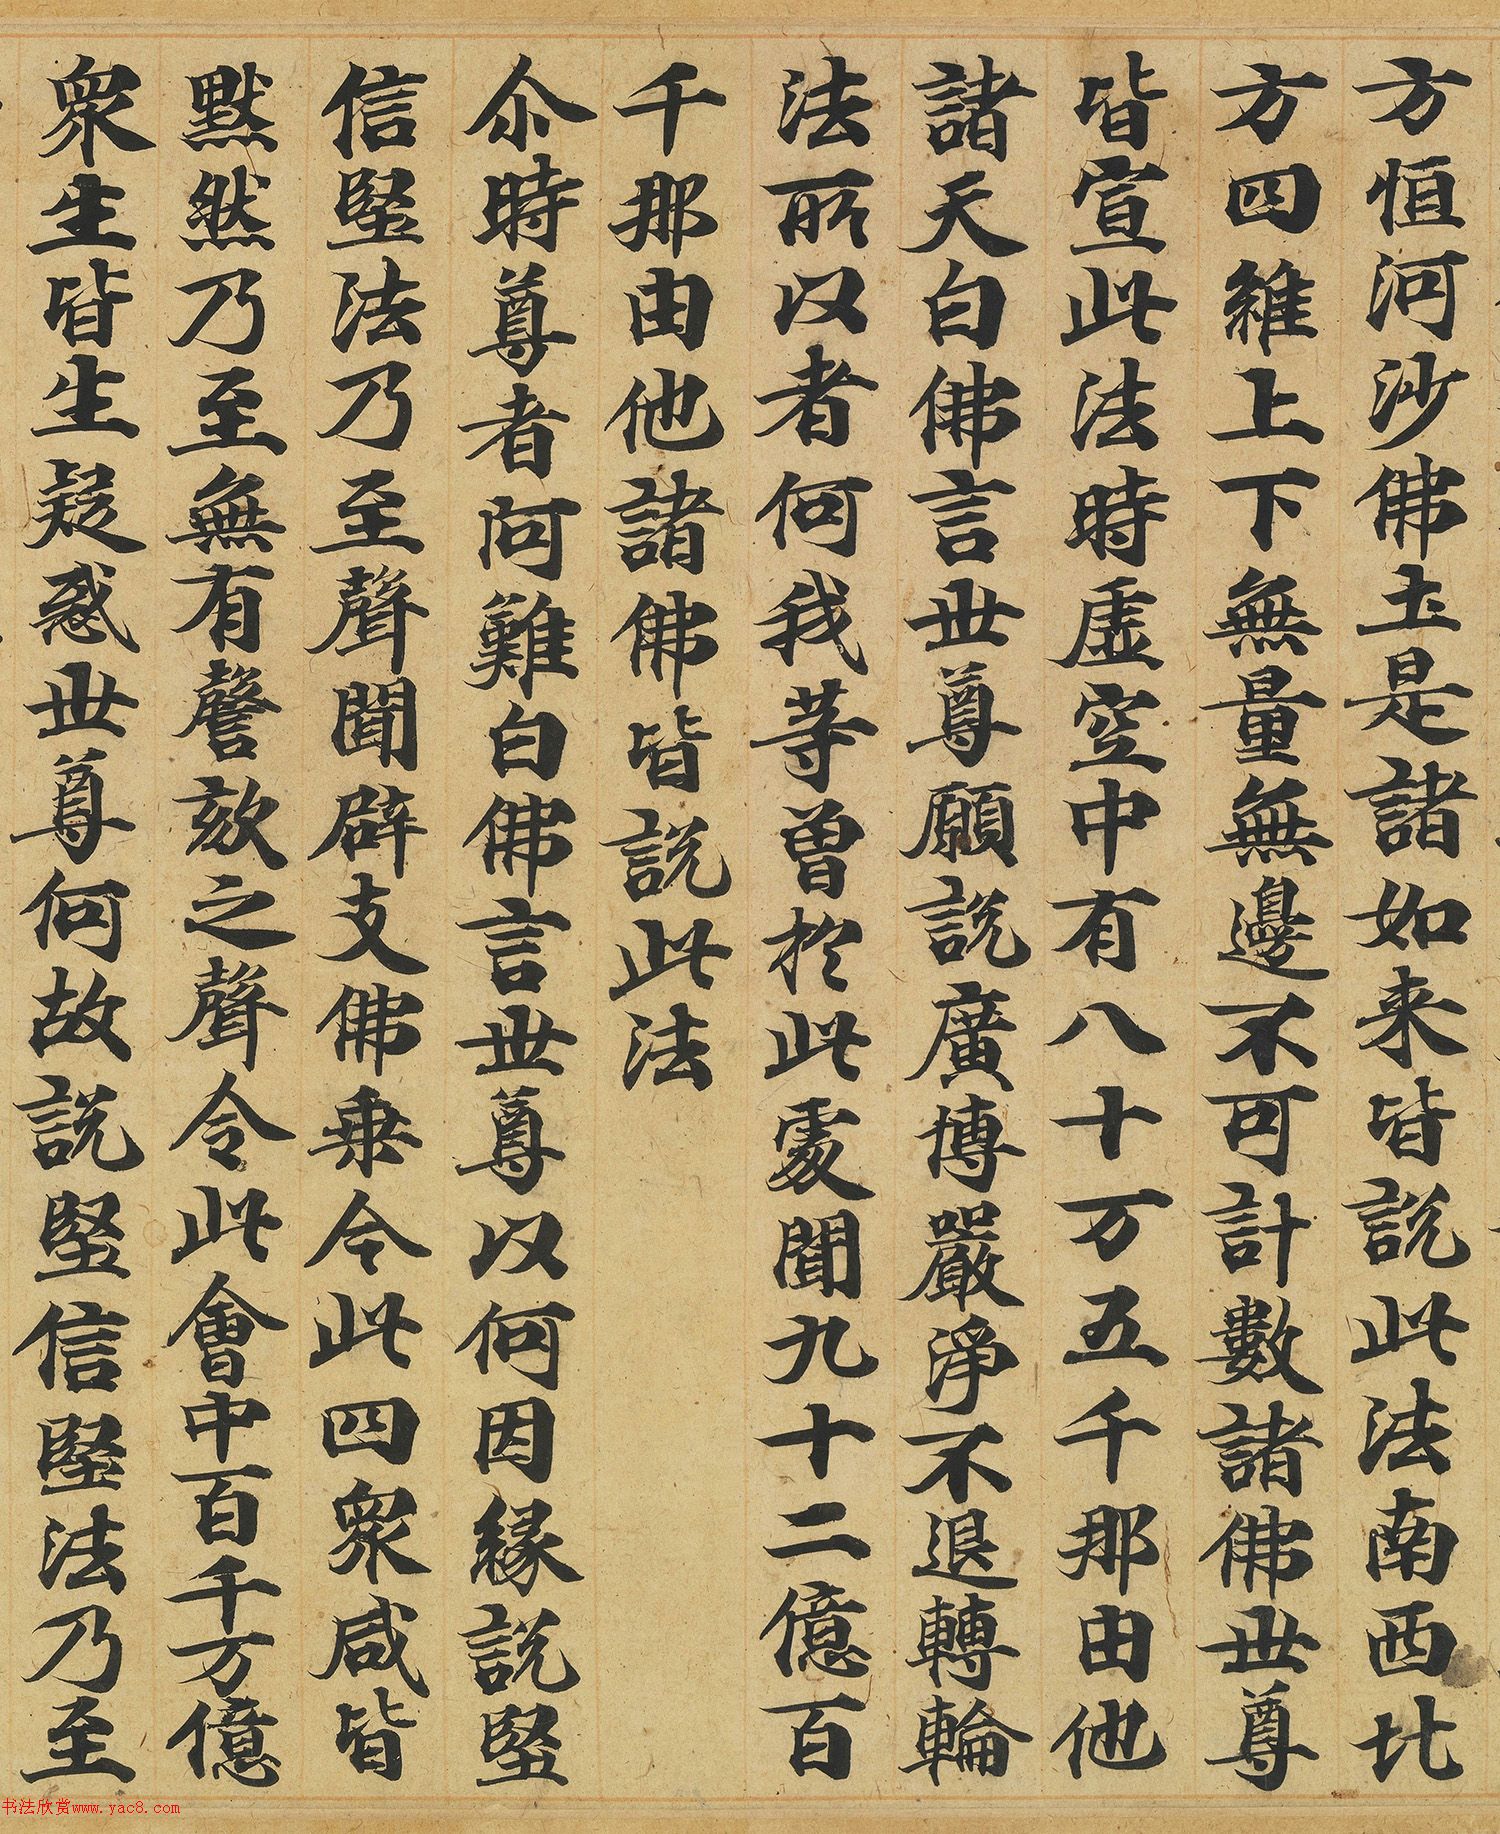 方恒河沙佛土是諸如来皆說此法南西北
方四維上下無量無邊不可計數諸佛世尊
皆宣此法時虛空中有八十万五千那由他
諸天白佛言世尊願說廣博嚴淨不退轉輪
法所以者何我等曾於此處聞九十二億百
千那由他諸佛皆說此法
尒時尊者阿難白佛言世尊以何因緣說堅
信堅法乃至聲聞辟支佛乗今此四衆咸皆
默然乃至無有謦欬之聲令此會中百千万億
衆生皆生疑惑世尊何故說堅信堅法乃至
书法欣赏www.yac8.com